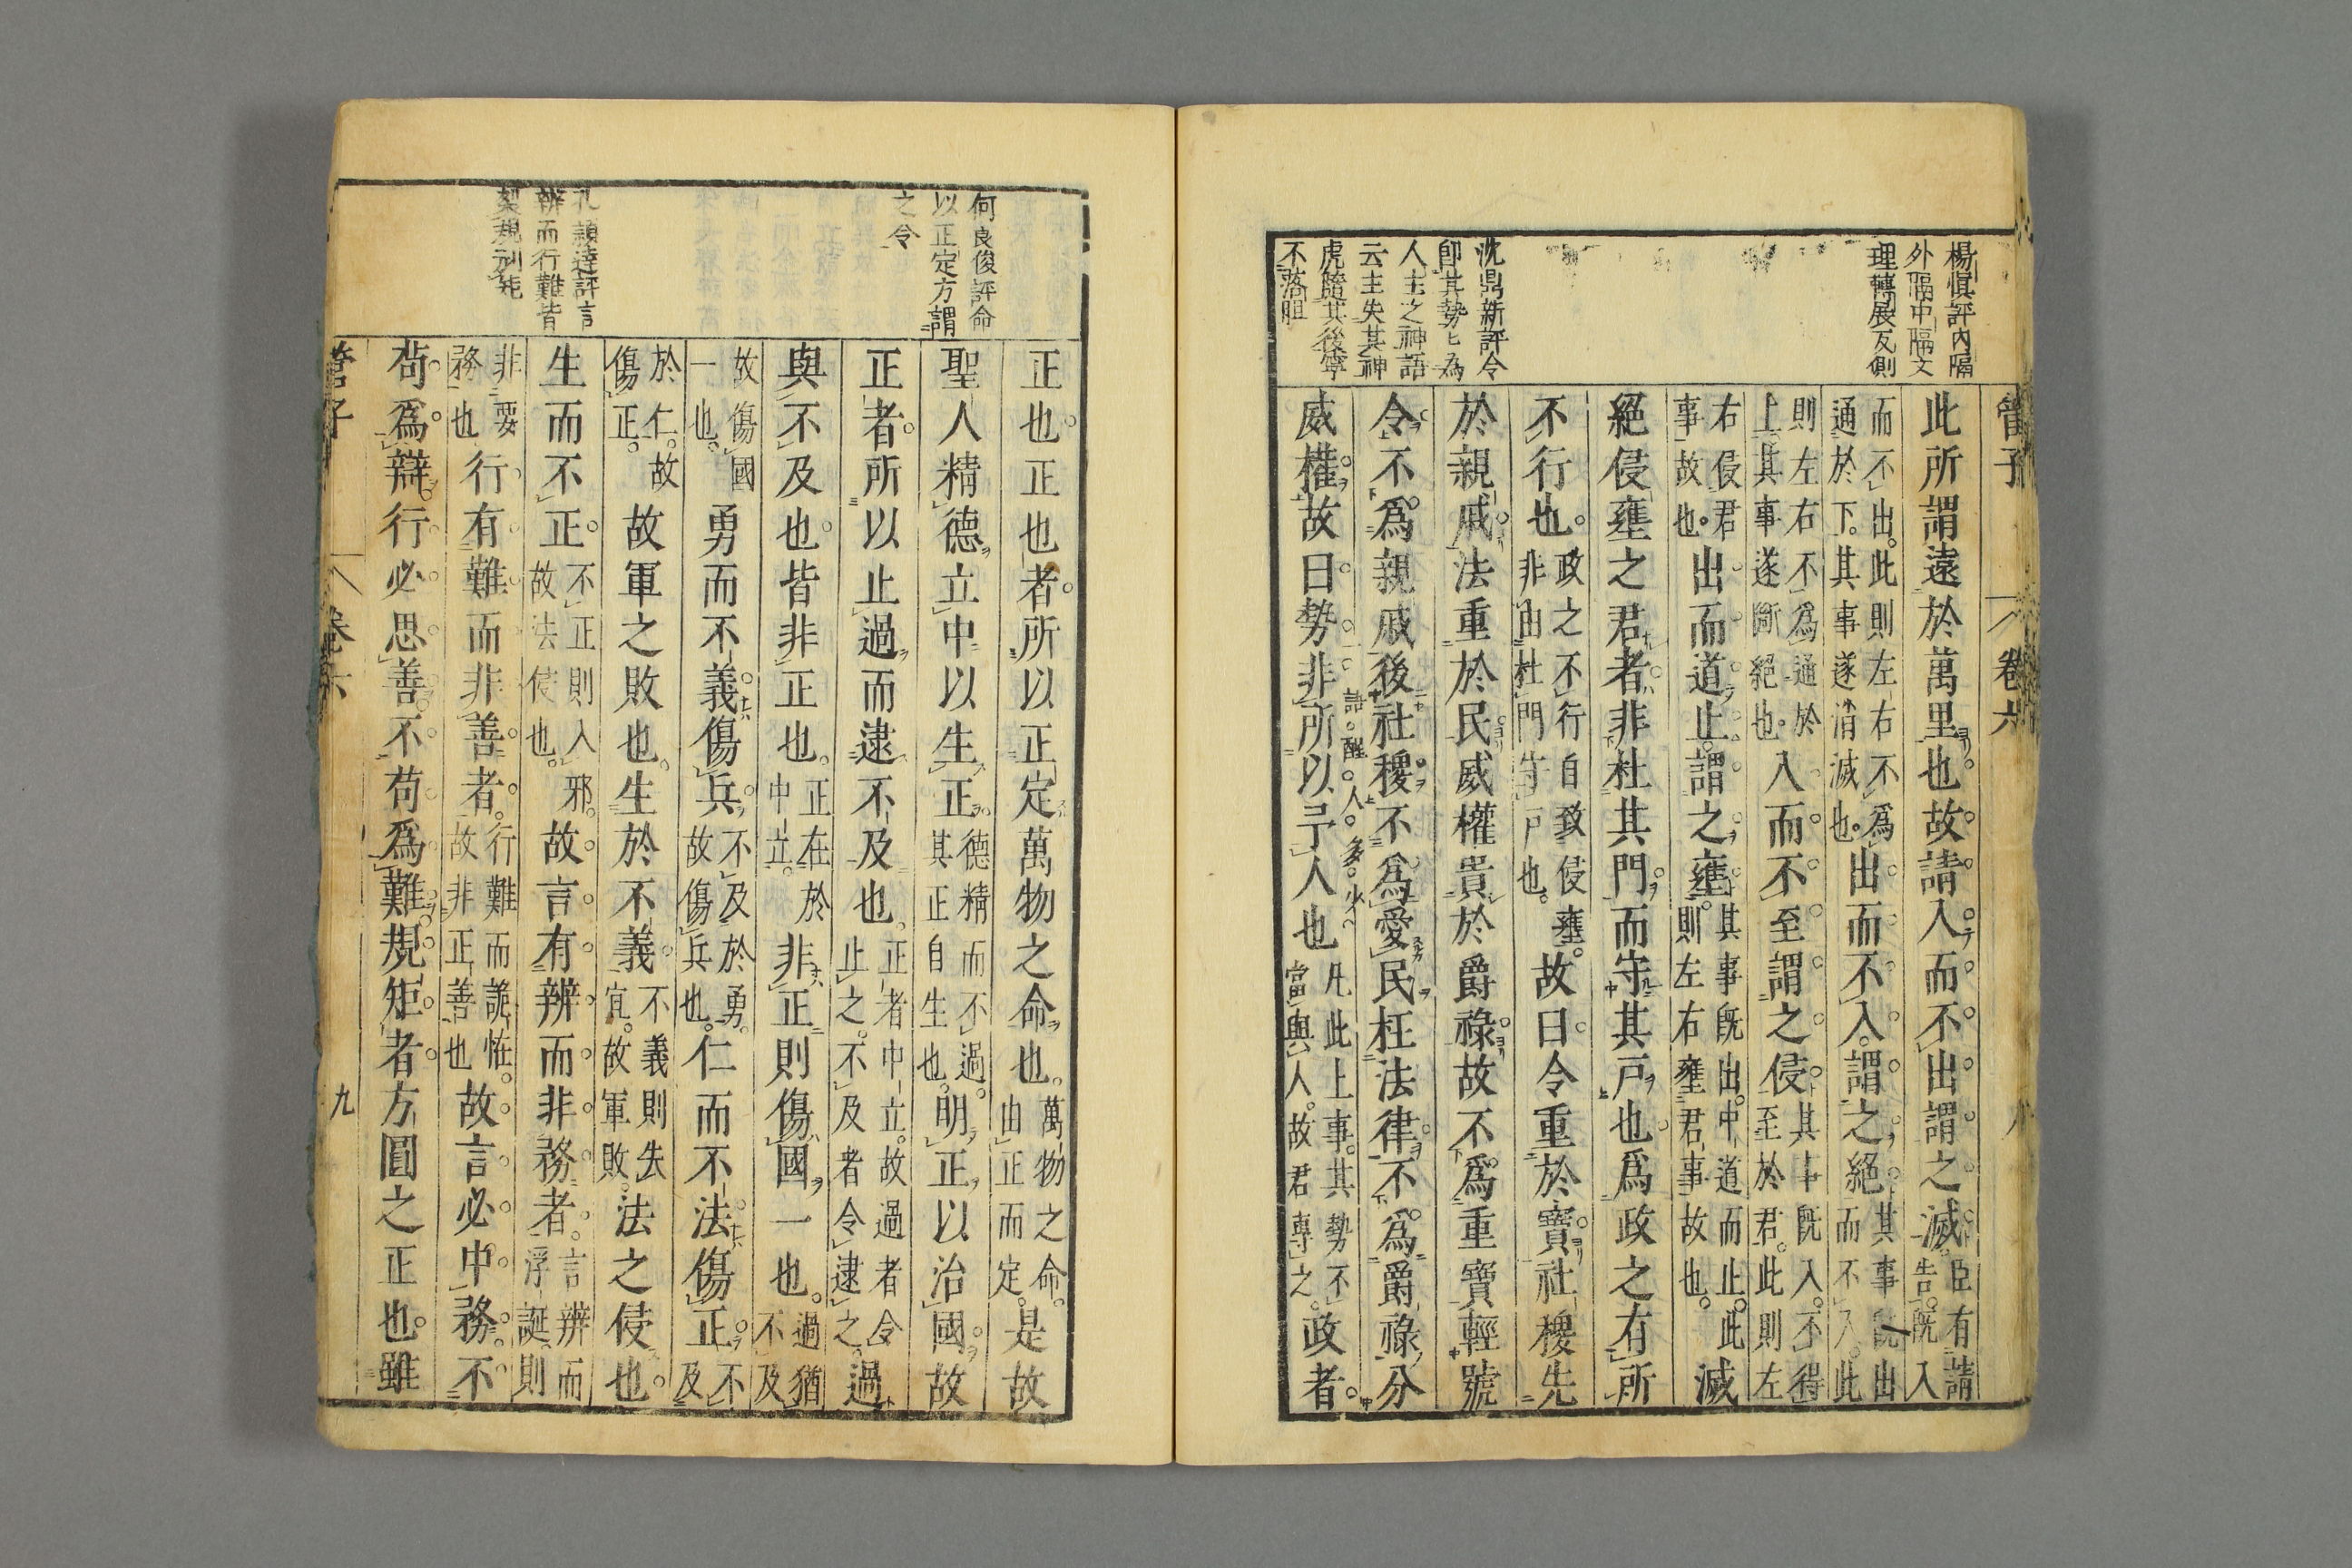 管子
卷六
楊愼評内隔
外隔中隔文
理轉展反側
沈鼎新評令
卽其勢上爲
人主之神語
云主失其神
虎隨其後寧
不落胆
此所謂遠於萬里也故請入而不出謂之滅臣有請告既入
而不出此則左右不爲通於下其事遂消滅也出而不入謂之絕其事既出而不入此
則左右不爲通於上其事遂斷絕也入而不至謂之侵其事既入不得至於君此則左
右侵君事故也出而道止謂之壅其事既出中道而止此則左右壅君事故也滅
絕侵壅之君者非杜其門而守其戸也爲政之有所
不行也政之不行自致侵壅非由杜門守戸也故曰令重於寶社稷先
於親戚法重於民威權貴於爵祿故不爲重寶輕號
令不爲親戚後社稷不爲愛民枉法律不爲爵祿分
威權故曰勢非所以予人也凡此上事其勢不當與人故君專之政者
詩醒人多少
何良俊評命
以正定方謂
之令
孔頴達評言
辨而行難皆
正也正也者所以正定萬物之命也萬物之命由正而定是故
聖人精德立中以生正德精而不過其正自生也明正以治國故
正者所以止過而逮不及也正者中立故過者令止之不及者令逮之過
與不及也皆非正也正在於中立非正則傷國一也過猶不及
故傷國一也勇而不義傷兵不及於勇故傷兵也仁而不法傷正不及
於仁故傷正故軍之敗也生於不義不義則失宜故軍敗法之侵也
生而不正不正則入邪故法侵也故言有辨而非務者言辨而浮誕則
非要務也行有難而非善者行難而詭怪故非正善也故言必中務不
苟爲辯行必思善不苟爲難規矩者方圓之正也雖
管子
卷六
九